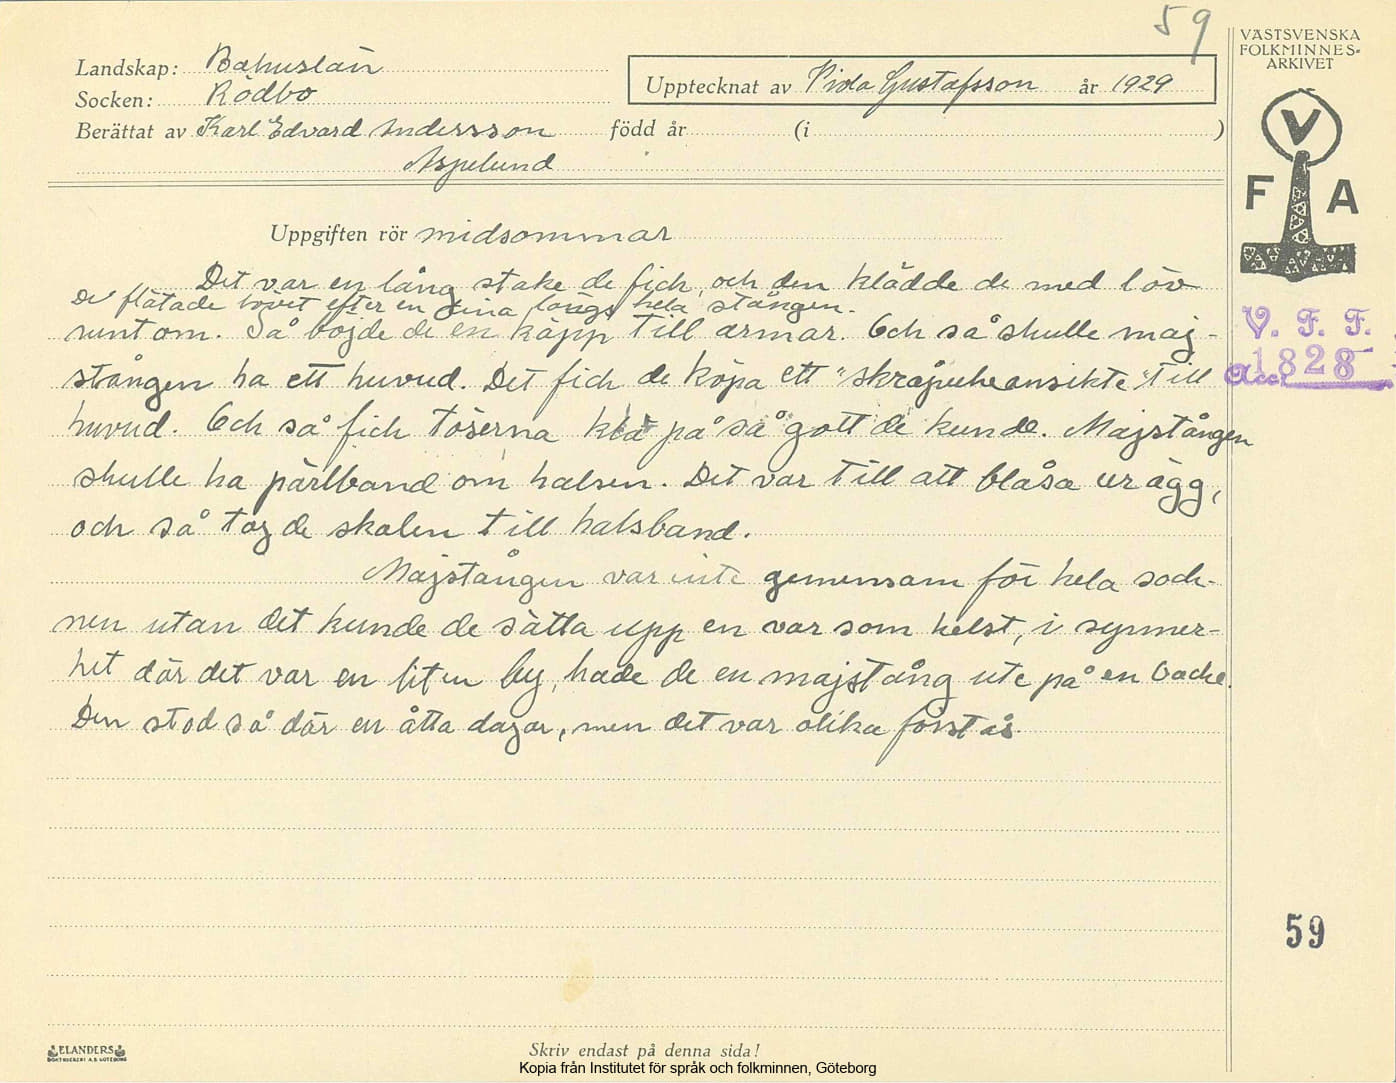 59
VÄSTSVENSKA
FOLKMINNES-
ARKIVET
Landskap: Bohuslän
Socken: Rödbo
Upptecknat av Vida Gustafsson år 1929
Berättat av Karl Edvard Andersson född år (i )
Aspelund
V
F A
Uppgiften rör midsommar
Det var en lång stake de fich, och den klädde de med löv
De flätade lövet efter en lina längs hela stången.
runtom. Så böjde de en käpp till armar. Och så skulle maj-
stången ha ett huvud. Det fich de köpa ett "skråpukeansikte" till
huvud. Och så fich töserna klä på så gott de kunde. Majstången
skulle ha pärlband om halsen. Det var till att blåsa ur ägg,
och så tog de skalen till halsband.
Majstången var inte gemensam för hela sock-
nen utan det kunde de sätta upp en var som helst, i synner-
het där det var en liten by, hade de en majstång ute på en backe.
Den stod så där en åtta dagar, men det var olika förstås.
V. F. F.
Acc. 1828
59
ELANDERS
BOKTRYCKERI A.B. GÖTEBORG
Skriv endast på denna sida!
Kopia från Institutet för språk och folkminnen, Göteborg